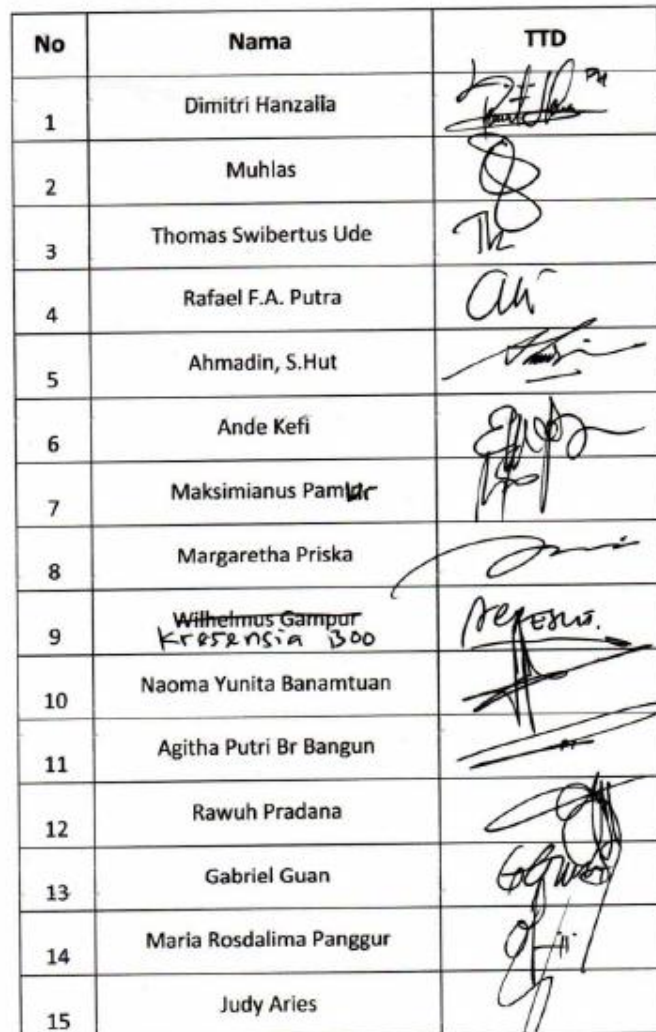 No Nama TTD
1 Dimitri Hanzalia
2 Muhlas
3 Thomas Swibertus Ude
4 Rafael F.A. Putra
5 Ahmadin, S.Hut
6 Ande Kefi
7 Maksimianus Pamkur
8 Margaretha Priska
9 Wilhelmus Gampur
Kresensia Boo
10 Naoma Yunita Banamtuan
11 Agitha Putri Br Bangun
12 Rawuh Pradana
13 Gabriel Guan
14 Maria Rosdalima Panggur
15 Judy Aries